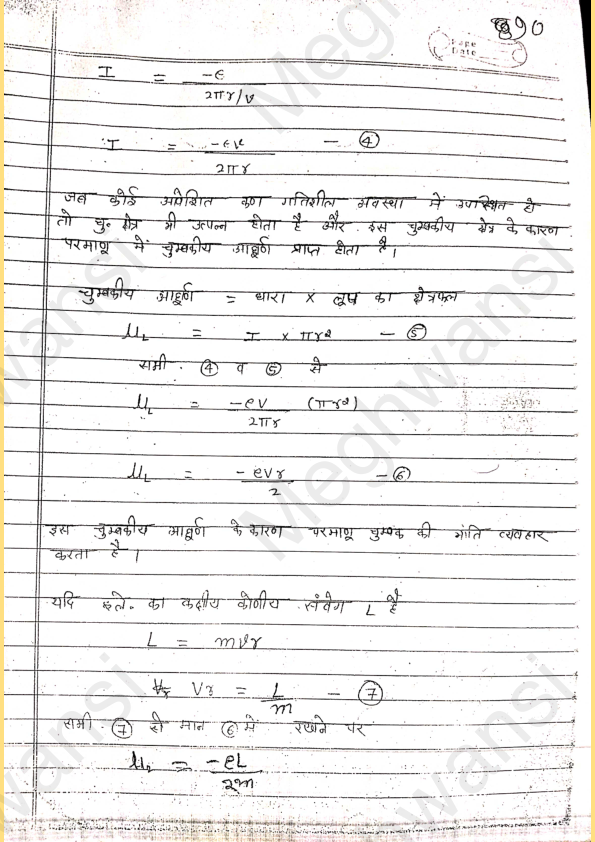 890
Page
Date
I = -e / 2πr/v
I = -ev / 2πr — ④
जब कोई आवेशित कण गतिशील अवस्था में उपस्थित हो
तो चु० क्षेत्र भी उत्पन्न होता है और इस चुम्बकीय क्षेत्र के कारण
परमाणु में चुम्बकीय आघूर्ण प्राप्त होता है।
चुम्बकीय आघूर्ण = धारा × लूप का क्षेत्रफल
μL = I × πr² — ⑤
समी. ④ व ⑤ से
μL = -ev / 2πr (πr²)
μL = -evr / 2 — ⑥
इस चुम्बकीय आघूर्ण के कारण परमाणु चुम्बक की भांति व्यवहार
करता है।
यदि इले. का कक्षीय कोणीय संवेग L है
L = mvr
vr = L / m — ⑦
समी. ⑦ से मान ⑥ में रखने पर
μL = -eL / 2m
Meghwansi
Meghwansi
wansi
wansi